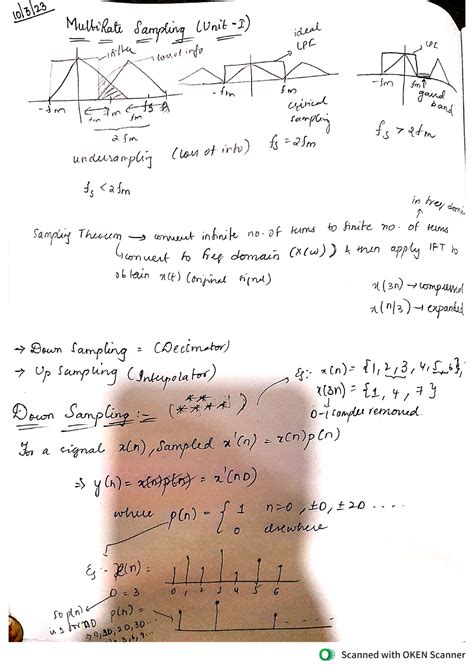 10/3/23
MultiRate Sampling (Unit-I)
filter
loss of info
ideal LPF
LPF
-fm fm fs
-fm fm
-fm fm
guard band
2fm
critical sampling
undersampling (loss of info)
fs = 2fm
fs > 2fm
fs < 2fm
in freq domain
Sampling Theorem → convert infinite no. of terms to finite no. of terms
convert to freq domain (X(ω)) & then apply IFT to
obtain x(t) (original signal)
x(3n) → compressed
x(n/3) → expanded
→ Down Sampling = (Decimator)
→ Up Sampling (Interpolator)
Eg:- x(n) = {1, 2, 3, 4, 5, 6}
x(3n) = {1, 4, 7}
D-1 samples removed.
Down Sampling :- (******)
For a signal x(n), sampled x'(n) = x(n)p(n)
⇒ y(n) = x(n)p(n) = x'(nD)
where p(n) = { 1 n=0, ±D, ±2D ....
0 elsewhere
Eg:- x(n) =
D = 3
0 1 2 3 4 5 6
so p(n) p(n) =
0, D, 2D, 3D...
0, 3, 6, 9...
Scanned with OKEN Scanner